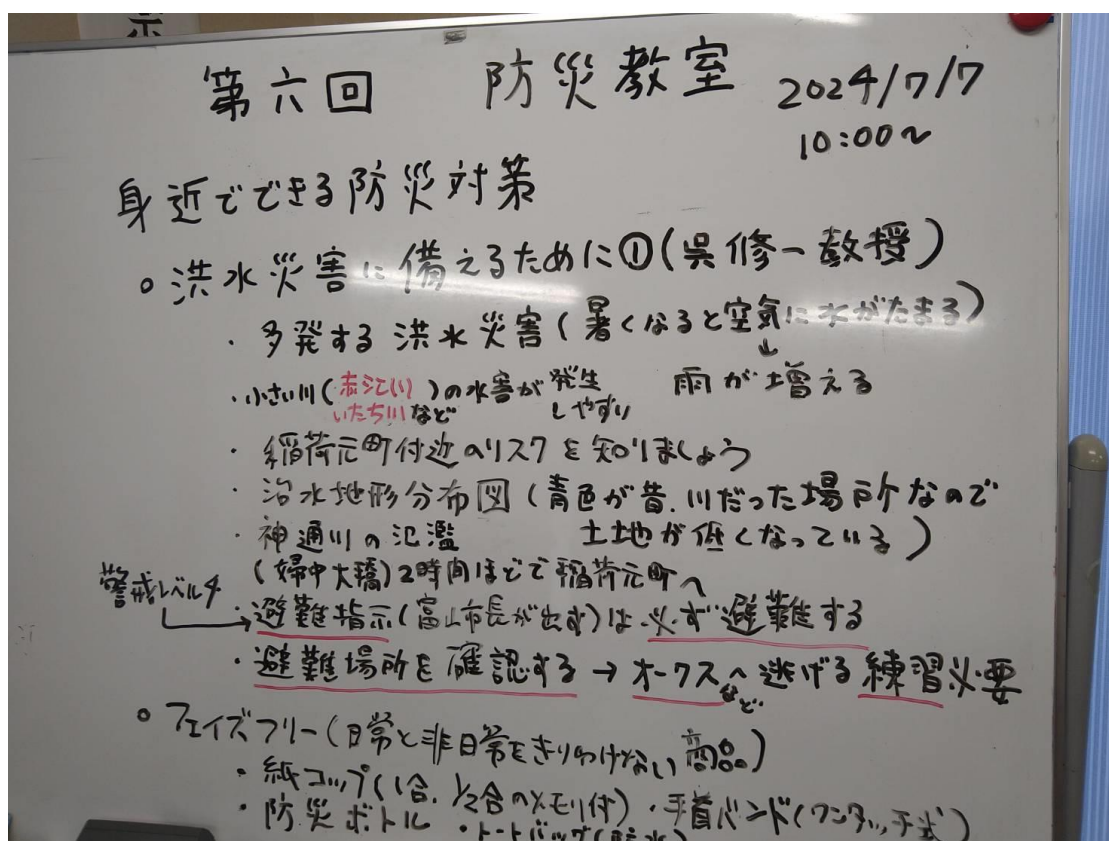 第六回 防災教室 2024/7/7
10:00~
身近でできる防災対策
◦洪水災害に備えるために①(呉修一教授)
・多発する洪水災害(暑くなると空気に水がたまる)
↓
雨が増える
・小さい川(赤江川 いたち川など)の水害が発生しやすい
・稲荷元町付近のリスクを知りましょう
・治水地形分布図(青色が昔、川だった場所なので
土地が低くなっている)
・神通川の氾濫
(婦中大橋)2時間ほどで稲荷元町へ
警戒レベル4
・避難指示(富山市長が出す)は必ず避難する
・避難場所を確認する→オークスなどへ逃げる練習必要
◦フェイズフリー(日常と非日常をきりわけない商品)
・紙コップ(1合、1/2合のメモリ付)・手首バンド(ワンタッチ式)
・防災ボトル ・トートバッグ(防水)